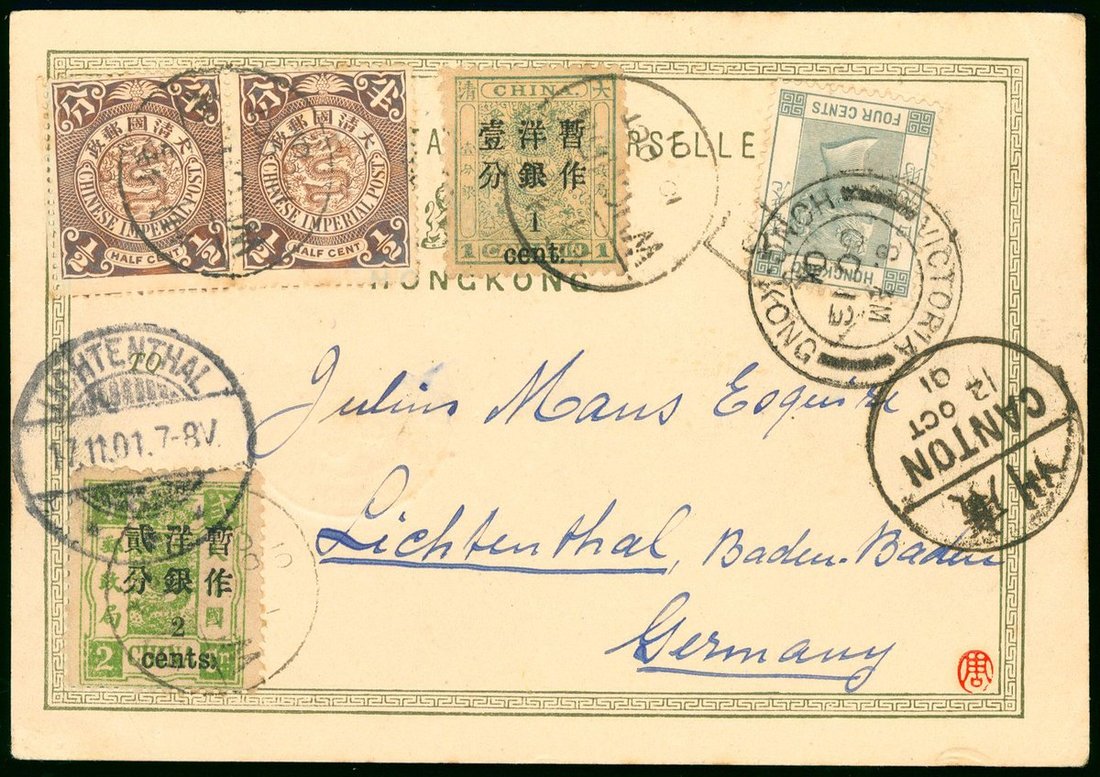 分 半
大清國郵政
CHINESE IMPERIAL POST
½ HALF CENT ½
分 半
大清國郵政
CHINESE IMPERIAL POST
½ HALF CENT ½
清 CHINA. 大
暫作
洋銀
壹分
1
cent.
1 CANDARIN 1
FOUR CENTS
HONGKONG
RSELLE
HONGKONG
VICTORIA
HONG KONG
8 AM
13 OC
01
TO
LICHTENTHAL
17.11.01.7-8V.
Julius Maus Esquire
Lichtenthal, Baden-Baden
Germany
CANTON
14 OCT
01
廣州
暫作
洋銀
貳分
2
cents.
政局
國
2